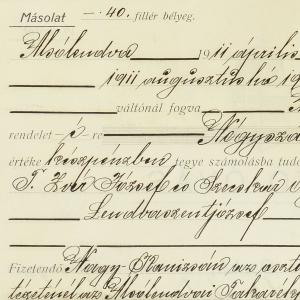 Másolat —.40. fillér bélyeg.
Alsólendva 1911 április
1911 augusztus hó 19
váltónál fogva
rendelet -é- re Négyszá
értéke készpénzben tegye számolásba tud
T. Zver József és Szecskár
Lendvaszentjózsef
Fizetendő Nagy-Kanizsán az oszt
tézeténél az Alsólendvai Takarék